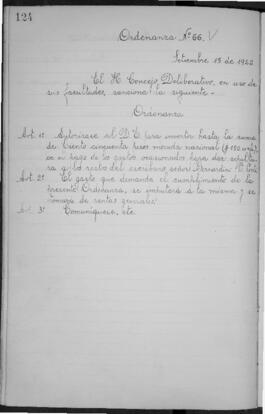 124
Ordenanza Nº 66.
Setiembre 15 de 1922
El H. Concejo Deliberativo, en uso de
sus facultades, sanciona la siguiente -
Ordenanza
Art. 1º Autorízase al D. E. para invertir hasta la suma
de Ciento cincuenta pesos moneda nacional ($ 150 m/n)
en el pago de los gastos ocasionados para dar sepultura
a los restos del escribano señor Bernardin
Art. 2º El gasto que demande el cumplimiento de la
presente Ordenanza, se imputará a la misma y se
tomará de rentas generales
Art. 3º Comuníquese, etc.